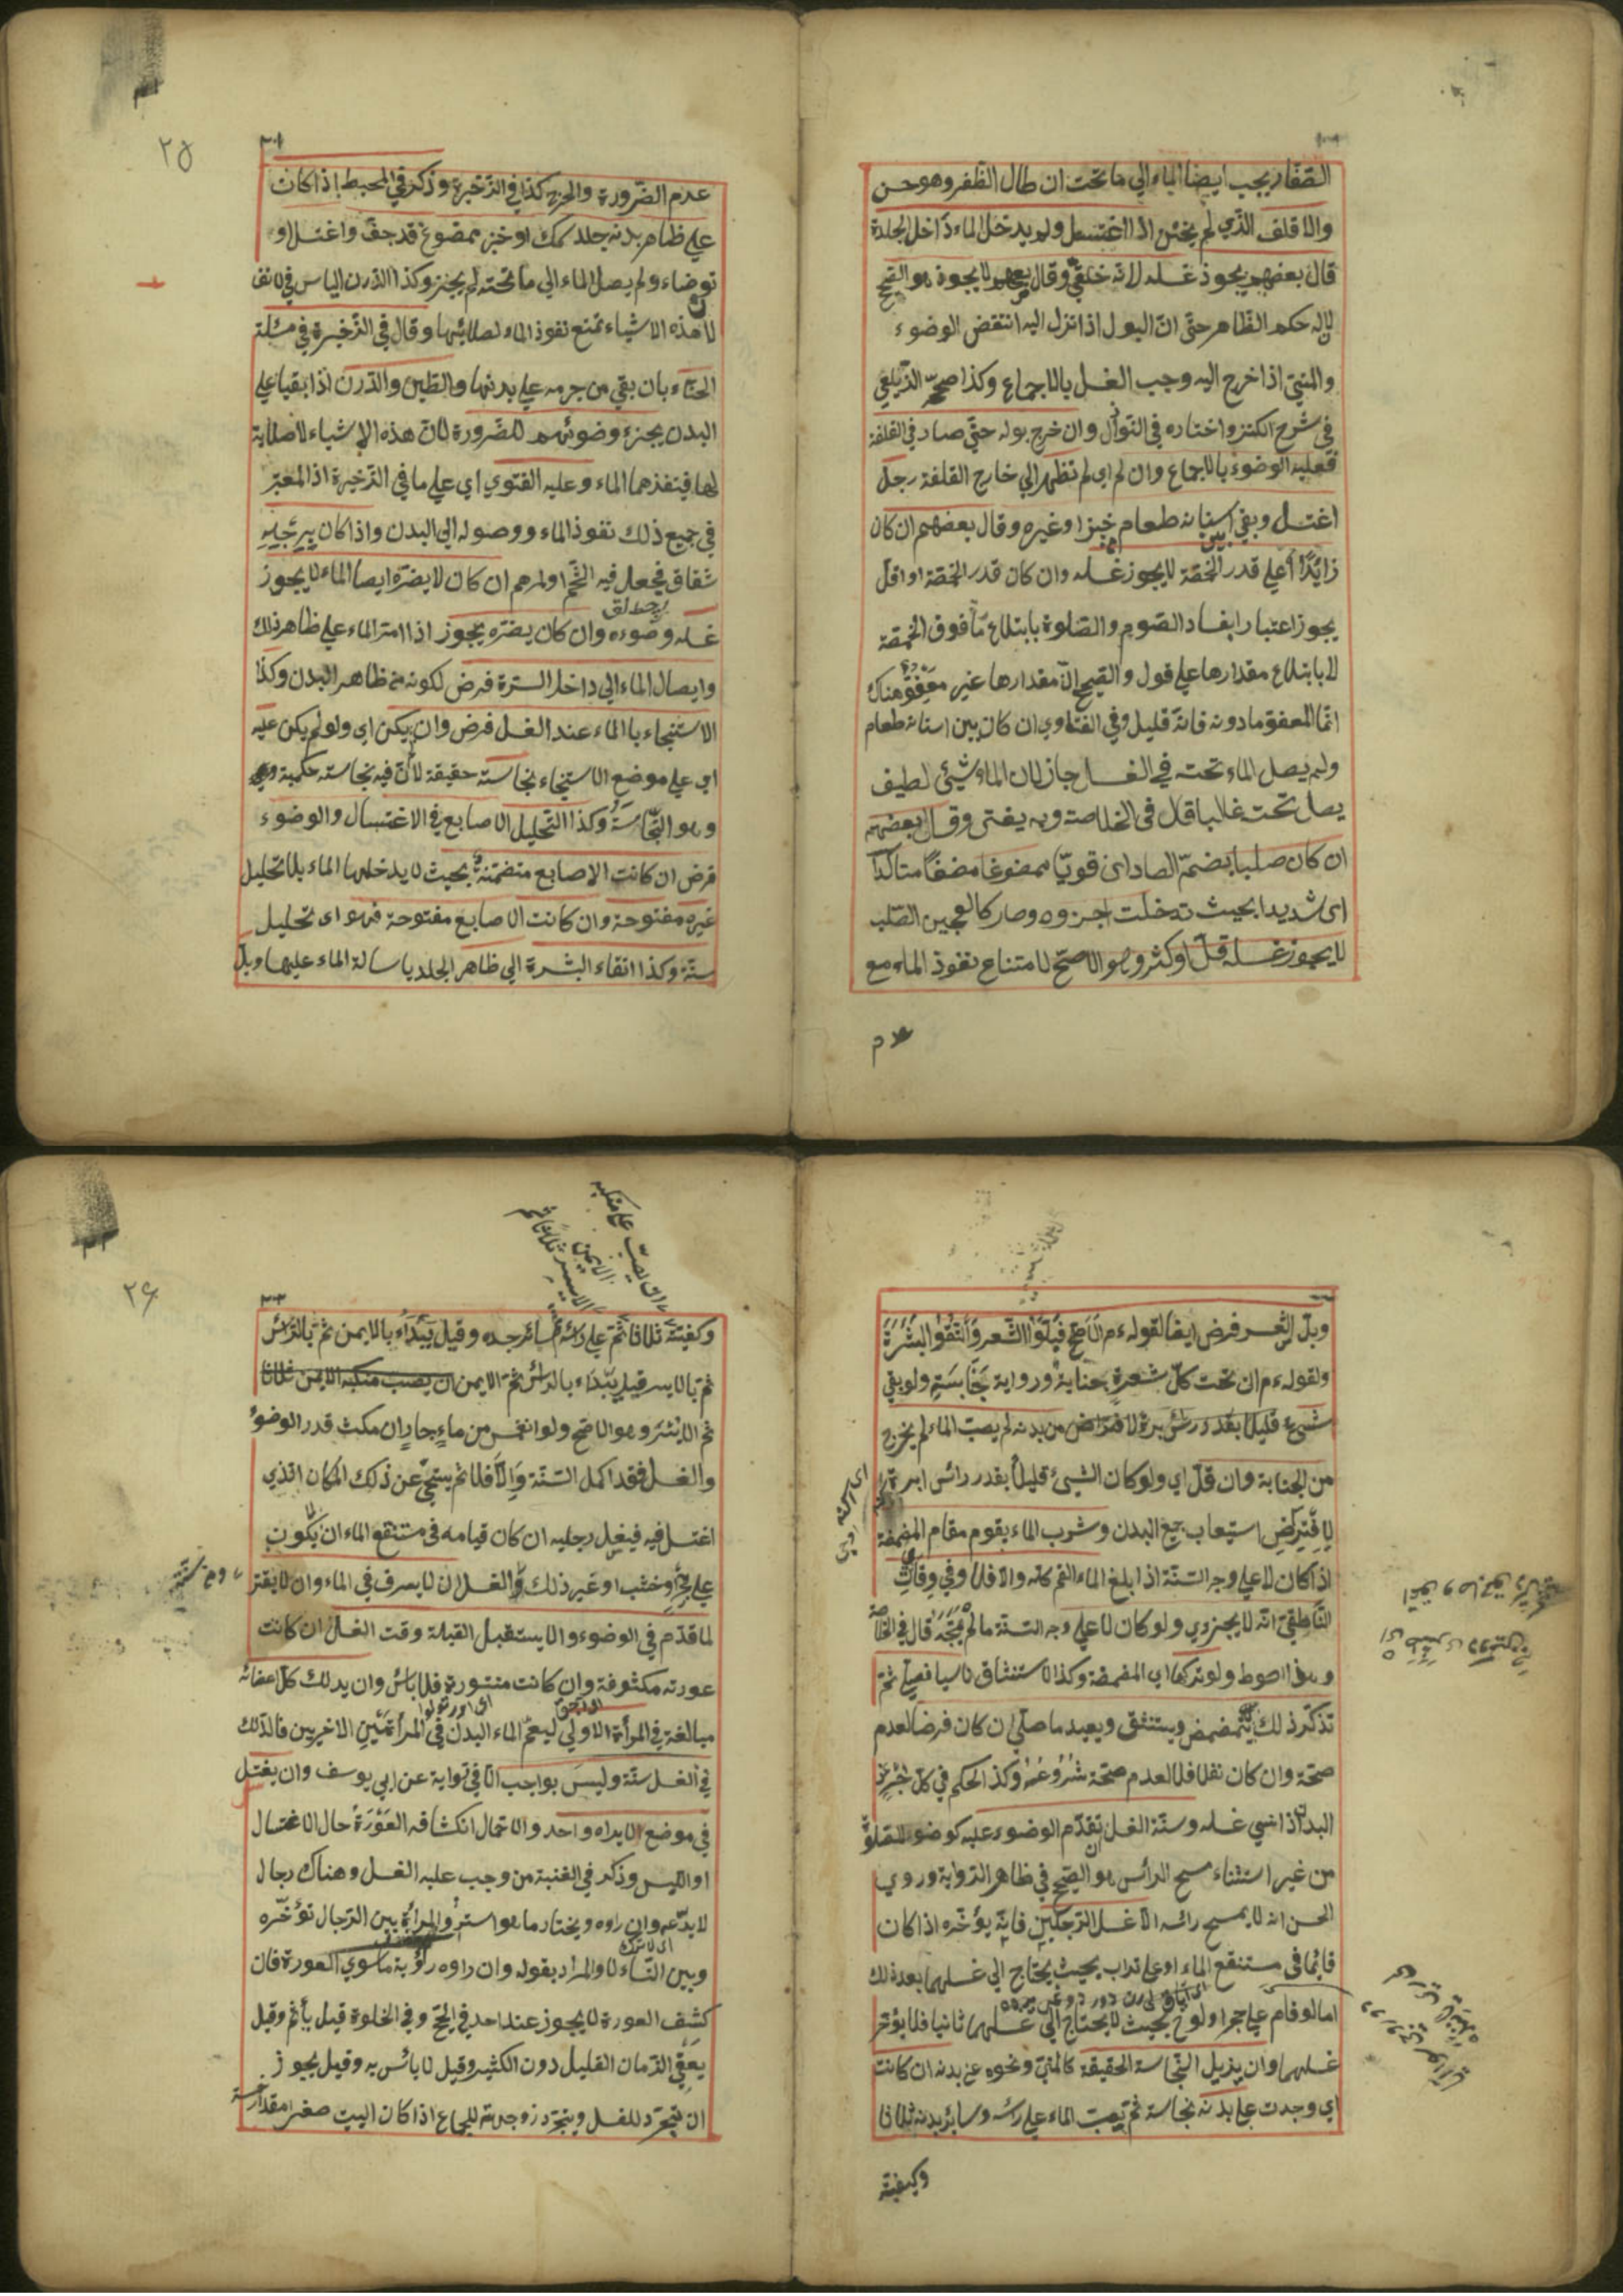 الصّفّار يجب ايصال الماء الي ما تحت ان طال الظفر وهو حسن
والاقلف الّذي لم يختن اذا اغتسل ولم يدخل الماء داخل الجلدة
قال بعضهم يجوز غسله لانّه خلقيّ وقال بعضهم لا يجوز هو الصّحيح
لانّ له حكم الظّاهر حتّى انّ البول اذا نزل اليه انتقض الوضوء
والمنيّ اذا خرج اليه وجب الغسل بالاجماع وكذا صحّحه الزّيلعي
في شرح الكنز واختاره في النّوازل وان خرج بوله حتّي صار في القلفة
فعليه الوضوء بالاجماع وان لم اي لم تظهر الي خارج القلفة رجل
اغتسل وبقي بين اسنانه طعام خبزا وغيره وقال بعضهم ان كان
زائدًا علي قدر الحمّصة لا يجوز غسله وان كان قدر الحمّصة او اقلّ
يجوز اعتبارا بفساد الصّوم والصّلوة بابتلاع ما فوق الحمّصة
لا بابتلاع مقدارها علي قول والصّحيح انّ مقدارها غير معفوّ هناك
انّما المعفوّ ما دونه فانّه قليل وفي الفتاوي ان كان بين اسنانه طعام
ولم يصل الماء تحته في الغسل جاز لانّ الماء شيئ لطيف
يصل تحته غالبا قال في الخلاصة وبه يفتى وقال بعضهم
ان كان صلبا بضمّ الصاد اى قويّا ممضوغا مضغًا متاكّدا
اى شديدا بحيث تدخلت اجزوه وصار كالعجين الصّلب
لا يجوز غسله قلّ او كثر وهو الاصحّ لامتناع نفوذ الماء مع
عدم
٢٥
عدم الضّرورة والحرج كذا في الذّخيرة وذكر في المحيط اذا كان
علي ظاهر بدنه جلد سمك او خبز ممضوغ قد جفّ واغتسل او
توضاء ولم يصل الماء الي ما تحته لم يجز وكذا الدّرن اليابس في الانف
لانّ هذه الاشياء تمنع نفوذ الماء لصلابتها وقال في الذّخيرة في مسئلة
الحنّاء بان بقي من جرمه علي بدنها والطّين والدّرن اذا بقيا علي
البدن يجزء وضوئهم للضّرورة لانّ هذه الاشياء لا صلابة
لها فينفذها الماء وعليه الفتوي اي علي ما في الذّخيرة اذ المعتبر
في جميع ذلك نفوذ الماء ووصوله الي البدن واذا كان برجليه
شقاق فجعل فيه الشّحم او المرهم ان كان لا يضرّه ايصال الماء لا يجوز
غسله وضوءه وان كان يضرّه يجوز اذا امرّ الماء علي ظاهر ذلك
وايصال الماء الي داخل السّرة فرض لكونه من ظاهر البدن وكذا
الاستنجاء بالماء عند الغسل فرض وان لم يكن اي ولو لم يكن عليه
اي علي موضع الاستنجاء نجاسة حقيقة لانّ فيه نجاسة حكمية
وهو النّجاسة وكذا التّخليل الاصابع في الاغتسال والوضوء
فرض ان كانت الاصابع منضمّة بحيث لا يدخلها الماء بلا تخليل
غير مفتوحة وان كانت الاصابع مفتوحة فهو اى تخليل
سنّة وكذا انقاء البشرة الي ظاهر الجلد باسالة الماء عليها وبلّ
وبلّ الشّعر فرض ايضا لقوله ءم الا صحّ فبلّوا الشّعر وانقوا البشرة
ولقوله ءم ان تحت كلّ شعرة جنابة ورواية نجاسة ولو بقي
شيئ قليلا بقدر رأس ابرة لافتراض من بدنه لم يصب الماء لم يخرج
من الجنابة وان قلّ اي ولو كان الشيئ قليلا بقدر رائس ابرة
لافتراض استيعاب جميع البدن وشرب الماء يقوم مقام المضمضة
اذا كان لا علي وجه السّنّة اذا بلغ الماء الفم كلّه والا فلا وفي واقعات
النّاطفيّ انّه لا يجزي ولو كان لا علي وجه السّنّة ما لم يمجّه قال في الخلاصة
وهذا احوط ولو تركها اى المضمضة وكذا الاستنشاق ناسيا فصلّي ثمّ
تذكّر ذلك يتمضمض ويستنشق ويعيد ما صلّي ان كان فرضا لعدم
صحّة وان كان نفلا فلا لعدم صحّة شروعه وكذا الحكم في كلّ جزء من
البدن اذا نسي غسله وسنّة الغسل ان تقدّم الوضوء عليه كوضوء للصّلوة
من غير استثناء مسح الرأس هو الصّحيح في ظاهر الرّواية وروي
الحسن انه لا يمسح رائسه الا غسل الرّجلين فانّه يؤخّره اذا كان
قائما في مستنقع الماء او علي تراب بحيث يحتاج الي غسلهما بعد ذلك
اما لو قام علي حجر او لوح بحيث لا يحتاج الي غسلهما ثانيا فلا يؤخّر
غسلهما وان يزيل النّجاسة الحقيقة كالمنيّ ونحوه عن بدنه ان كانت
اي وجدت علي بدنه نجاسة ثمّ يصبّ الماء علي رأسه وسائر بدنه ثلاثا
وكيفيّته
٢٦
وكيفيّته ثلاثا ثمّ علي رأسه ثمّ سائر جسده وقيل يبداء بالايمن ثمّ بالرّاس
ثمّ بالايسر قيل يبداء بالرأس ثمّ الايمن ان يصبّ منكبه الايمن ثلاثا
ثم الايسر وهو الاصحّ ولو انغمس من ماء جار ان مكث قدر الوضوء
والغسل فقد اكمل السّنّة والّا فلا ثمّ يتنحّي عن ذلك المكان الّذي
اغتسل فيه فيغسل رجليه ان كان قيامه في مستنقع الماء ان لا يكون
علي حجر وخشب او غير ذلك والغسل ان لا يسرف في الماء وان لا يقتر
لما قدّم في الوضوء والا يستقبل القبلة وقت الغسل ان كانت
عورته مكشوفة وان كانت مستورة فلا باس وان يدلك كلّ اعضائه
مبالغة في المرأة الاولي ليعمّ الماء البدن في المرأتين الاخريين فالدّلك
في الغسل سنّة وليس بواجب الّا في رواية عن ابي يوسف وان يغتسل
في موضع لا يراه واحد والاحتمال انكشافه العورة حال الاغتسال
او اللبس وذكر في الغنية من وجب عليه الغسل وهناك رجال
لا يدعه وان راوه ويختار ما هو استر والمرأة بين الرّجال تؤخّره
وبين النّساء لا والمراد بقوله وان راوه رؤية ما سوي العورة فان
كشف العورة لا يجوز عند احد في الصّحّ وفي الخلوة قيل يأثم وقيل
يعفي الزّمان القليل دون الكثير وقيل لا بائس به وقيل يجوز
ان يتجرّد للغسل ويتجرّد زوجته للجماع اذا كان البيت صغيرا مقدار